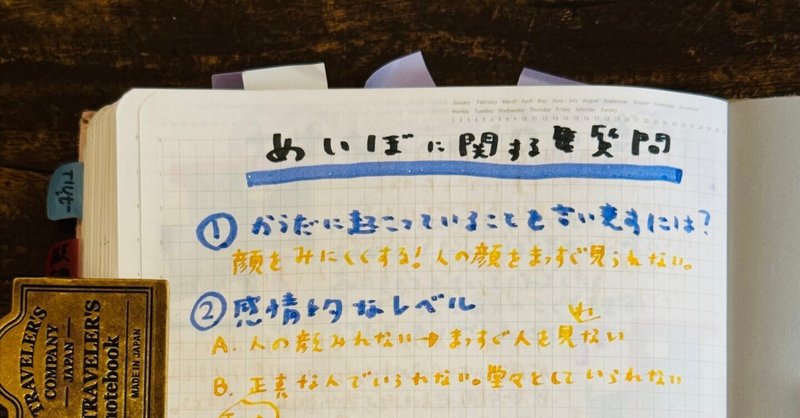 January February March April May June July August September October November December
Monday Tuesday Wednesday Thursday Friday Saturday Sunday
めいぼに関する質問
① からだに起こっていることを言い表すには?
顔をみにくくする!人の顔をまっすぐ見られない。
② 感情的なレベル
A. 人の顔みれない→まっすぐ人を見れない
B. 正直な人でいられない。堂々としていられない
TRAVELER'S
COMPANY
JAPAN
TRAVELER'S
notebook
MADE IN JAPAN